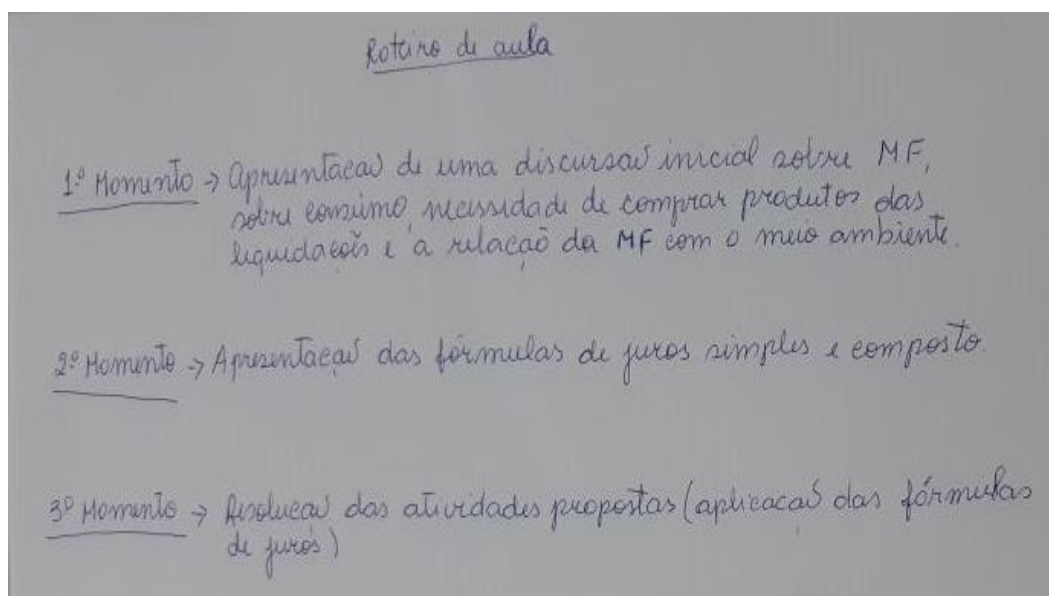 Roteiro de aula
1º Momento → Apresentação de uma discursão inicial sobre MF,
sobre consumo, necessidade de comprar produtos das
liquidações e a relação da MF com o meio ambiente.
2º Momento → Apresentação das fórmulas de juros simples e composto.
3º Momento → Resolução das atividades propostas (aplicação das fórmulas
de juros)